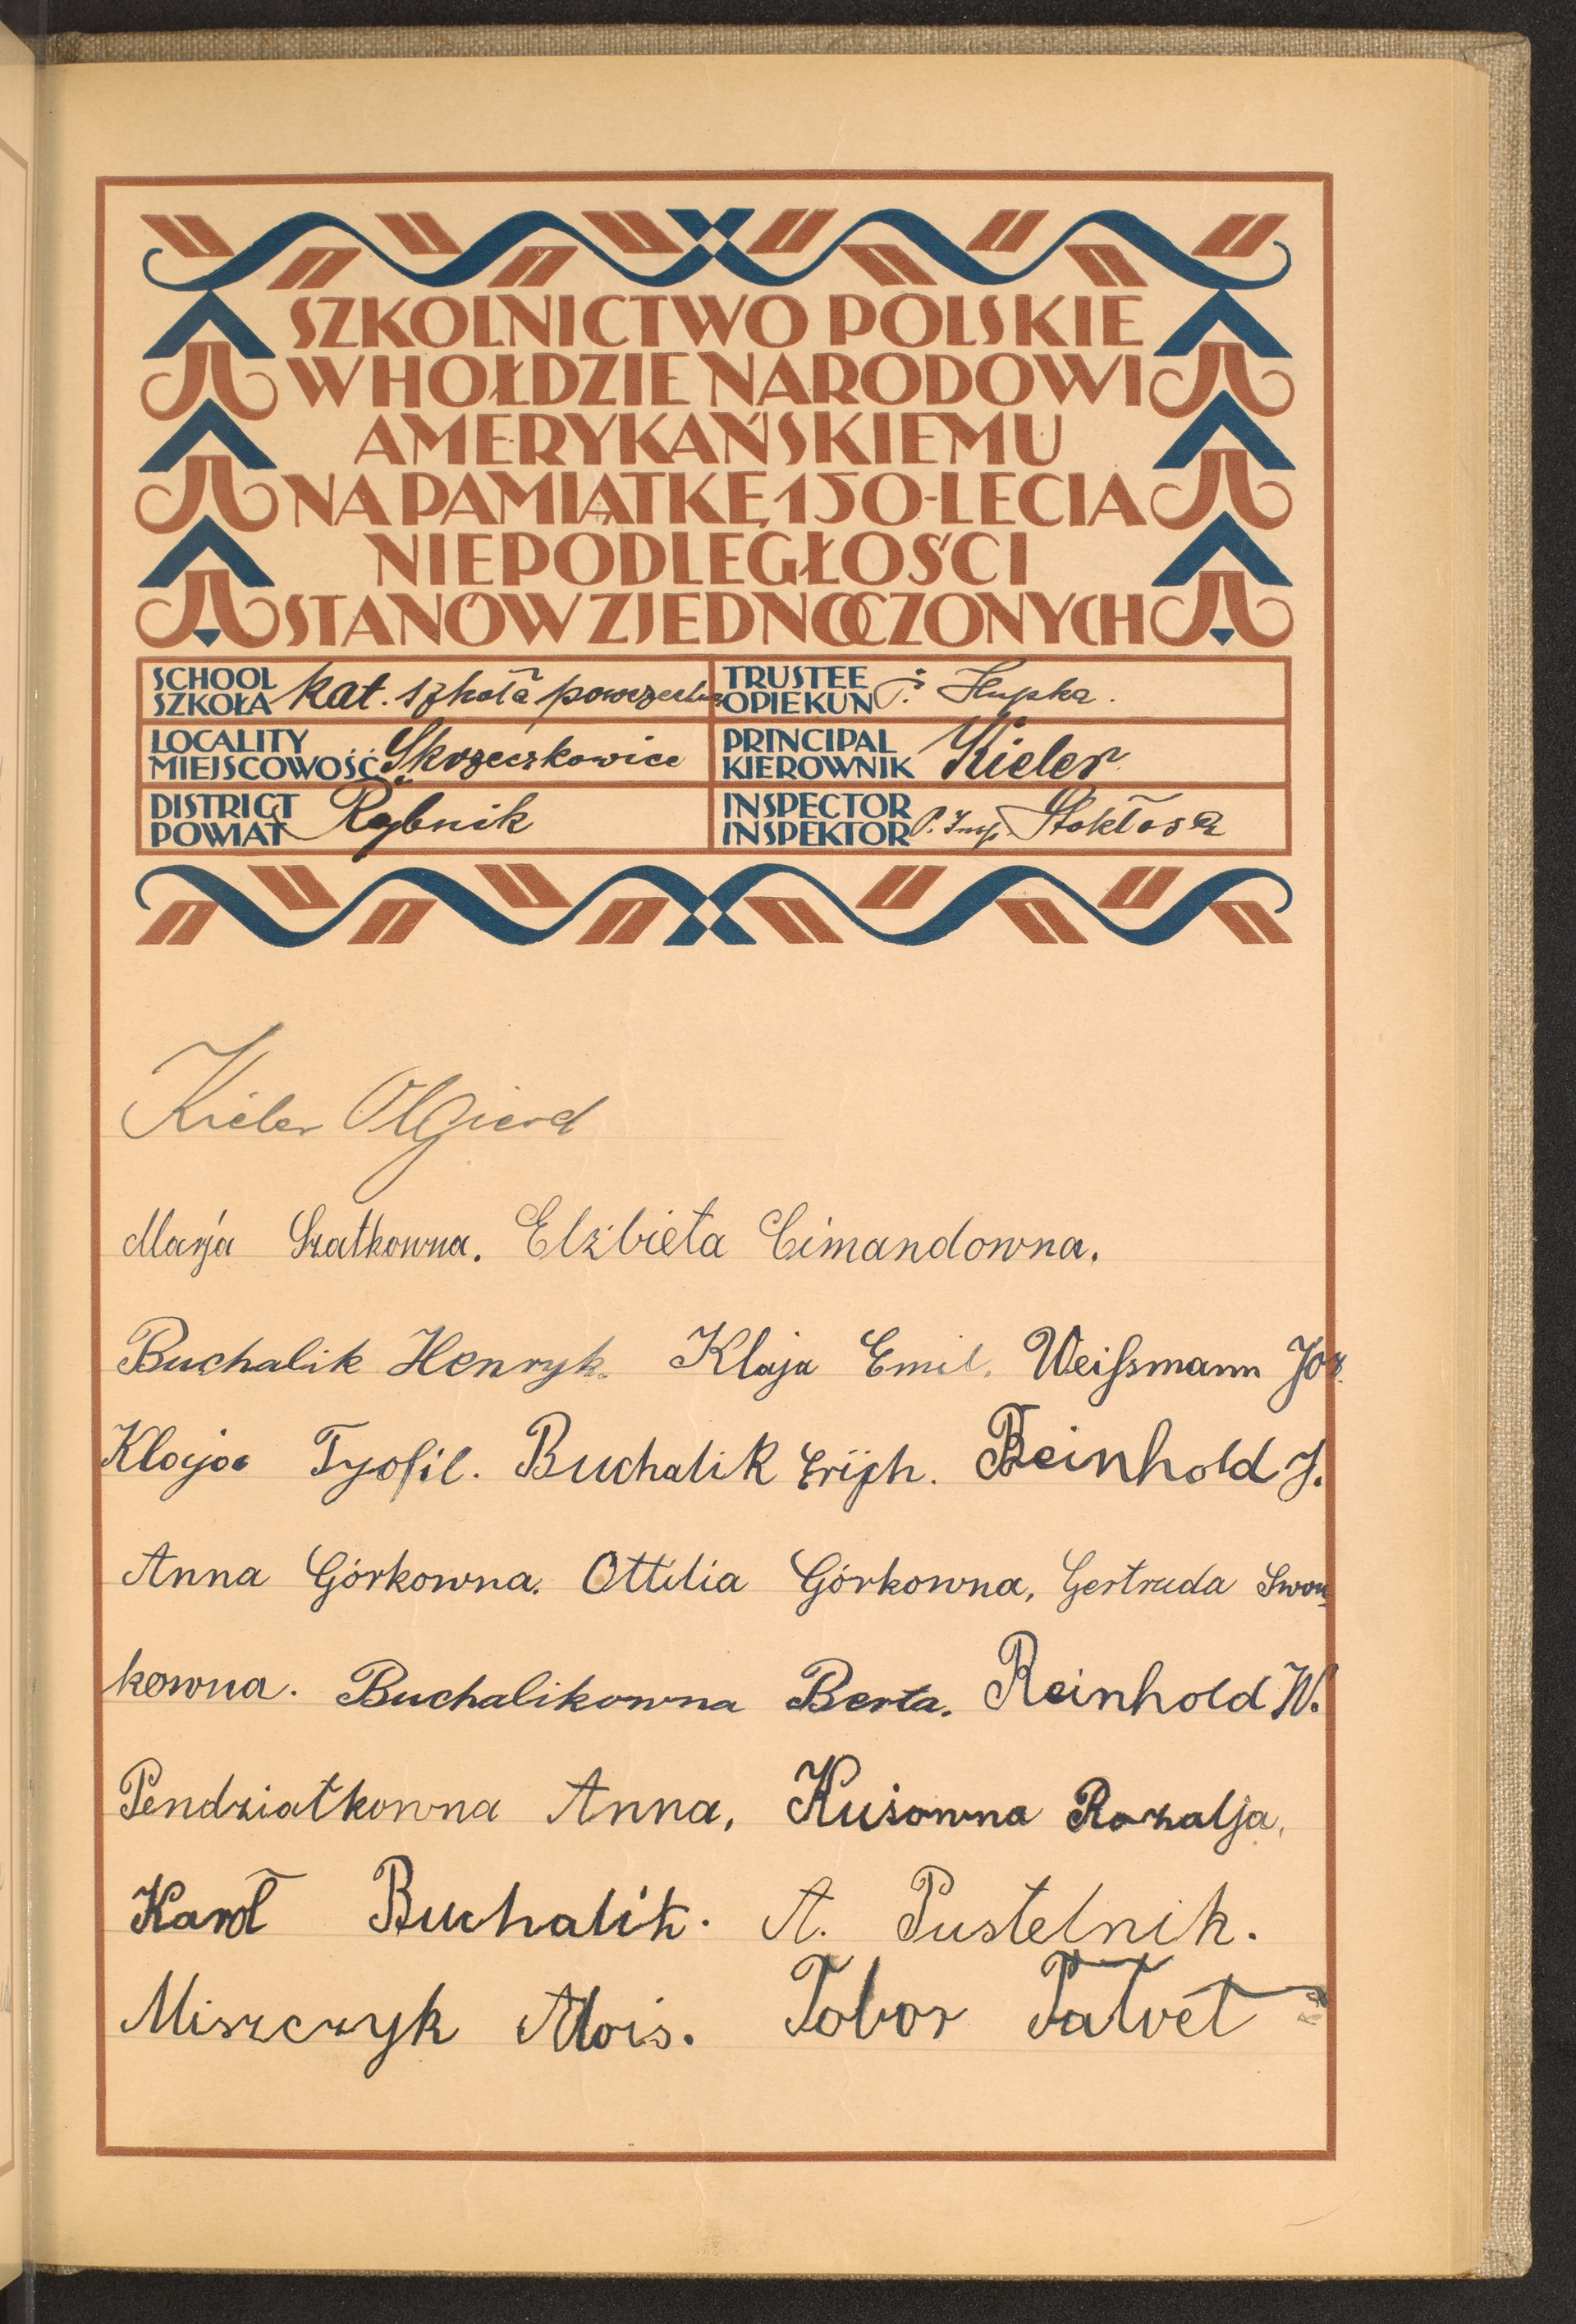 SZKOLNICTWO POLSKIE
W HOŁDZIE NARODOWI
AMERYKAŃSKIEMU
NA PAMIĄTKĘ 150-LECIA
NIEPODLEGŁOŚCI
STANÓW ZJEDNOCZONYCH
SCHOOL
SZKOŁA kat. szkoła powszechna
TRUSTEE
OPIEKUN P. Hupka.
LOCALITY
MIEJSCOWOŚĆ Skrzeczkowice
PRINCIPAL
KIEROWNIK Kieler
DISTRICT
POWIAT Rybnik
INSPECTOR
INSPEKTOR P. Insp. Stokłosa
Kieler Olgierd
Marja Szatkowna. Elżbieta Cimandowna.
Buchalik Henryk. Klaja Emil. Weißmann Joz.
Klaja Tyofil. Buchalik Erijh. Reinhold J.
Anna Górkowna. Ottilia Górkowna, Gertruda Swon-
kowna. Buchalikowna Berta. Reinhold W.
Pendziałkowna Anna, Kusowna Rozalja,
Karol Buchalik. A. Pustelnik.
Miszczyk Alois. Tobor